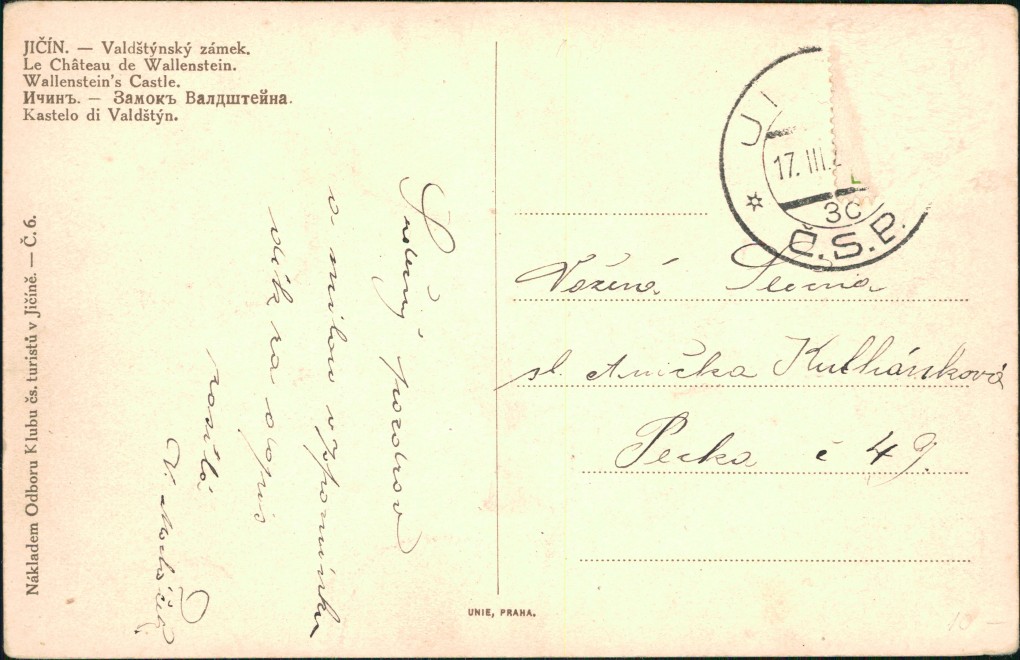 JIČÍN. — Valdštýnský zámek.
Le Château de Wallenstein.
Wallenstein's Castle.
Ичинъ. — Замокъ Валдштейна.
Kastelo di Valdštýn.
Nákladem Odboru Klubu čs. turistů v Jičíně. — Č. 6.
Srdečný pozdrav
a milou vzpomínku
dík za dopis
zasílá
V.
JI
17. III.
3c
Č.S.P.
Vážená Slečna
sl. Anička Kulhánková
Pecka č 49.
UNIE, PRAHA.
10 -